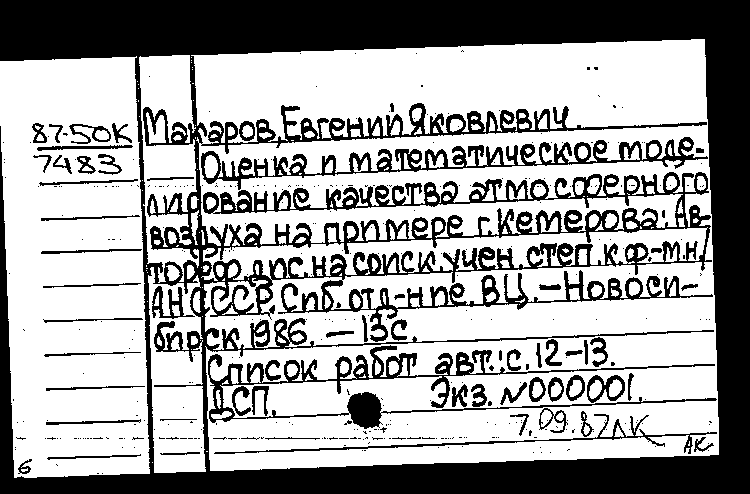 87-50К
7483
Макаров, Евгений Яковлевич.
Оценка и математическое моде-
лирование качества атмосферного
воздуха на примере г. Кемерова: Ав-
тореф. дис. на соиск. учен. степ. к.ф.-м.н/
АН СССР. Сиб. отд-ние. ВЦ. - Новоси-
бирск, 1986. - 13с.
Список работ авт.: с. 12-13.
ДСП. Экз. N000001.
7.09.87 ЛК
АК
6